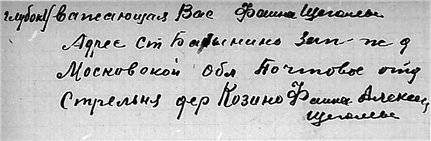 глубок/уважающая Вас Фаина Щеголье
Адрес ст Барынино зап-ж д
Московской Обл Почтовое отд
Стрельня дер Козино Фаина Алексеев
Щеголье